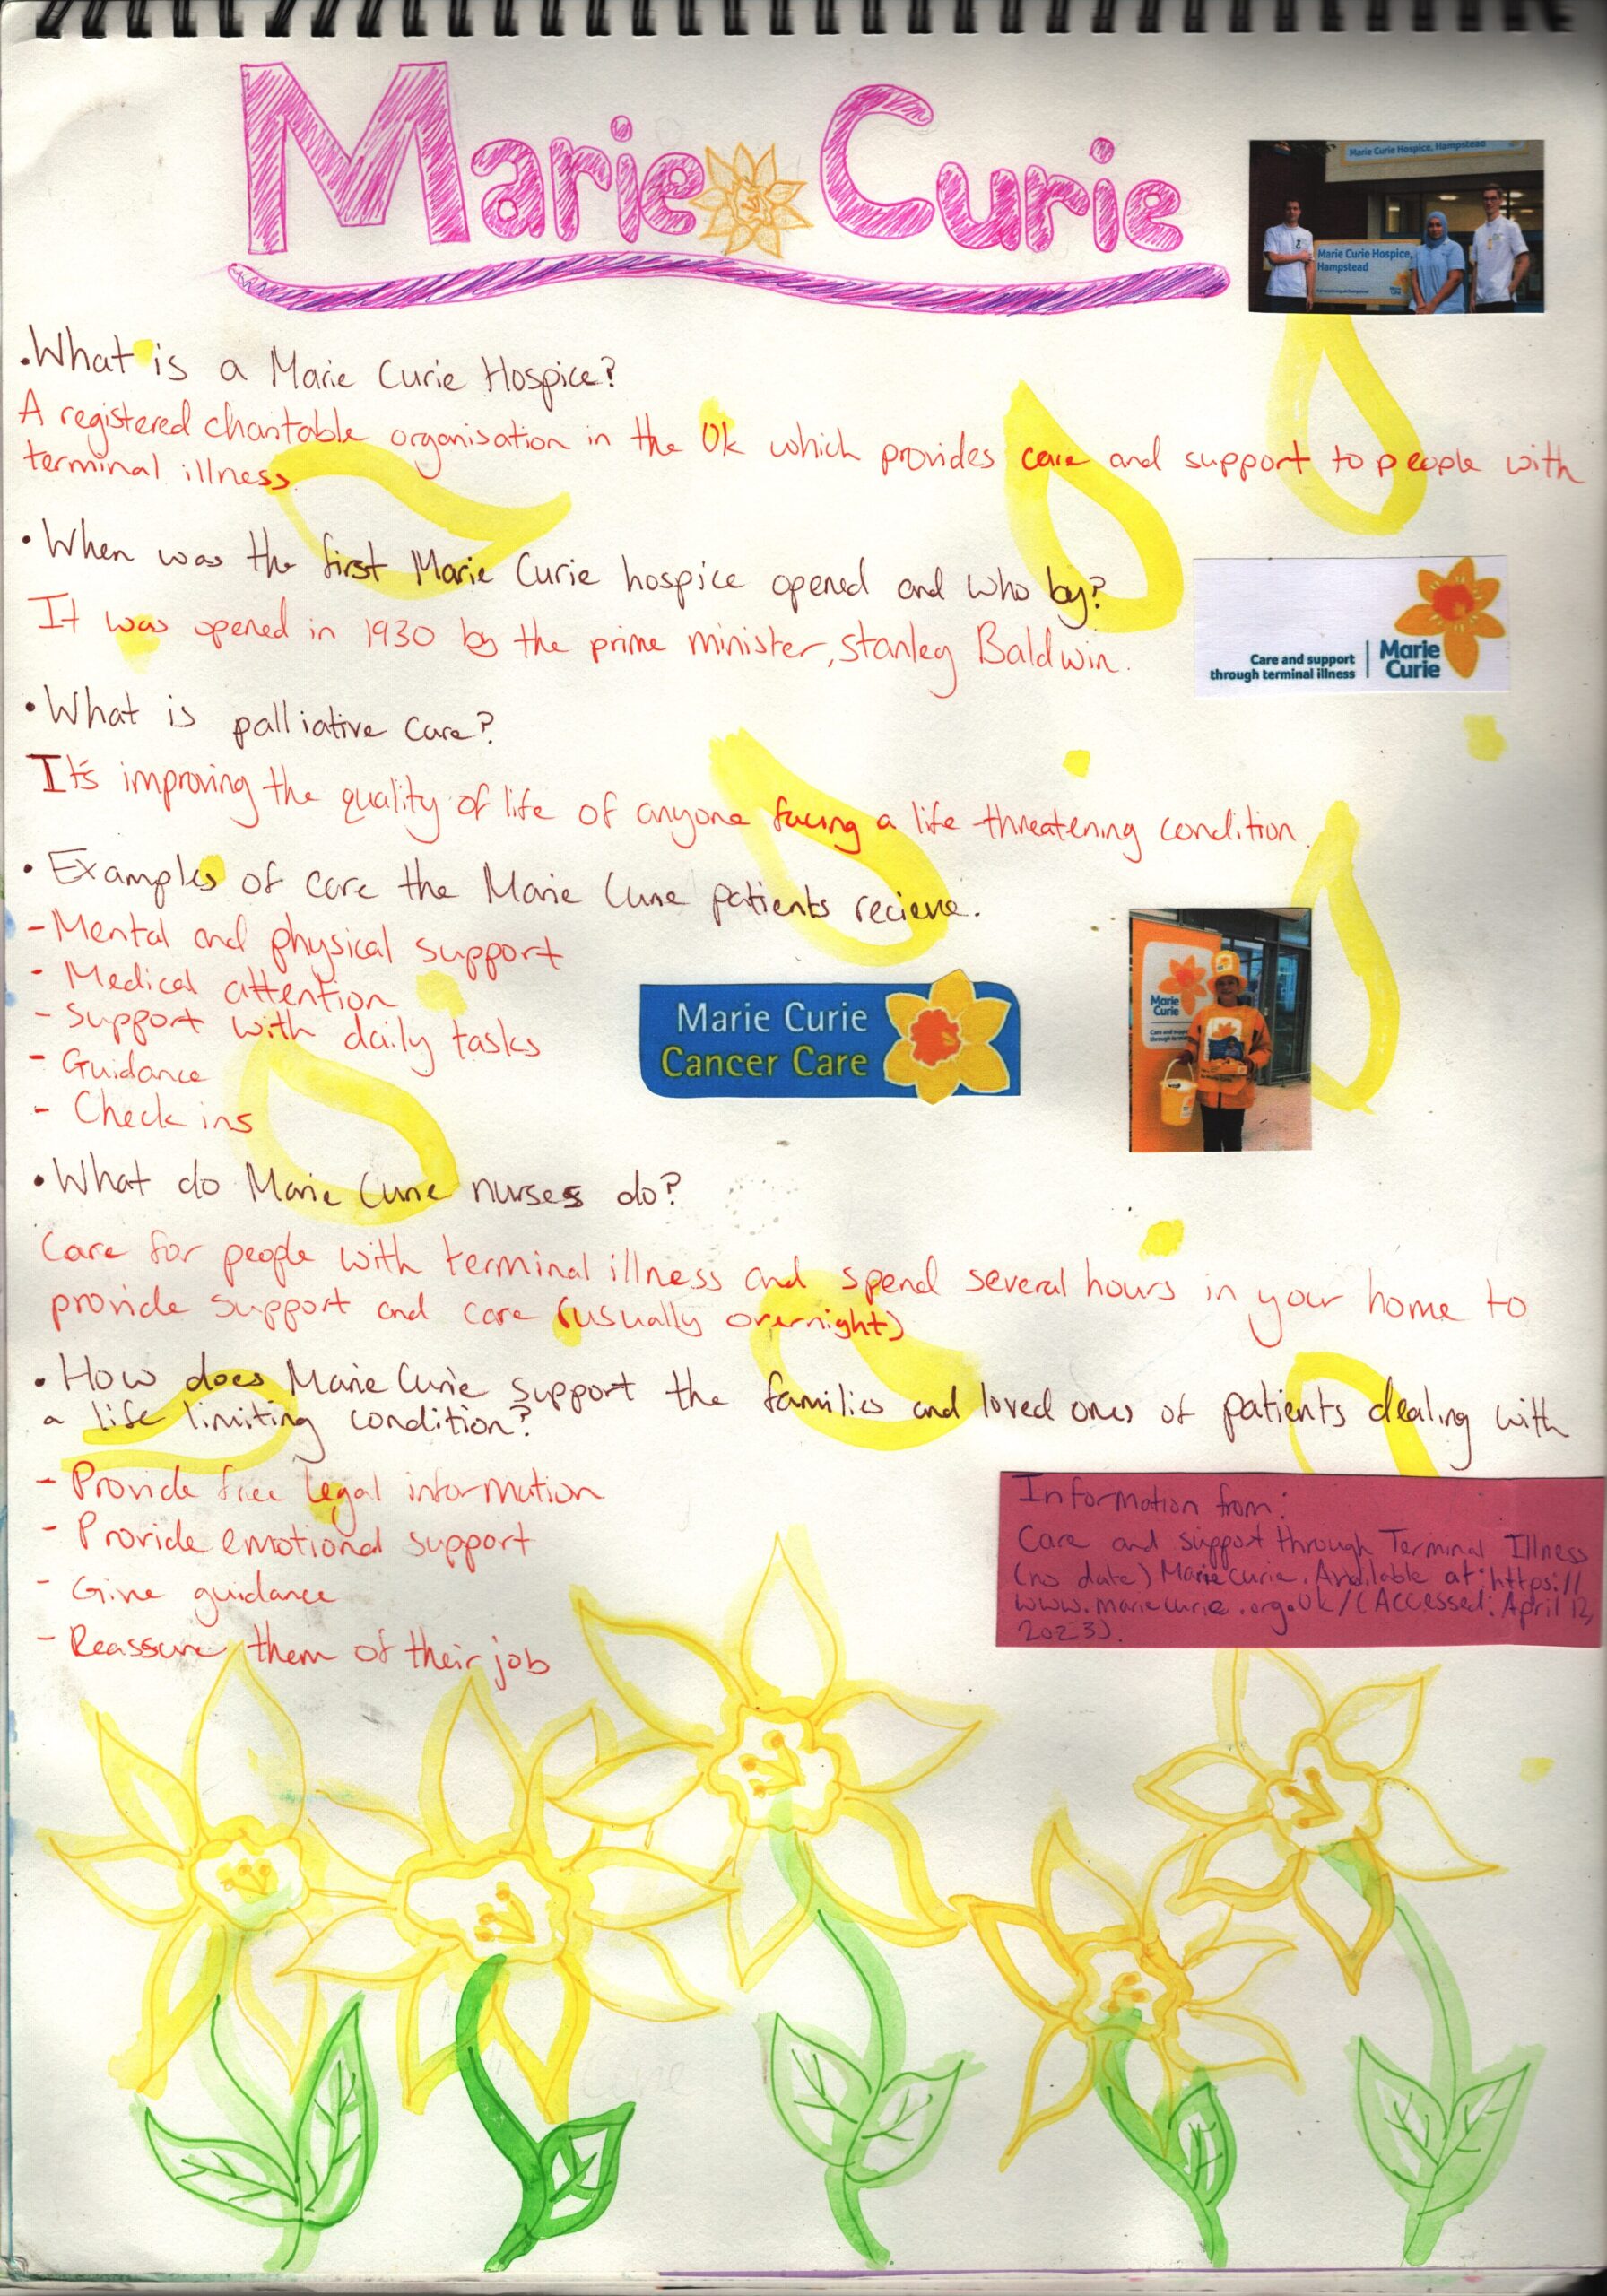 Marie Curie
Marie Curie Hospice, Hampstead
Marie Curie Hospice,
Hampstead
Marie
Curie
•What is a Marie Curie Hospice?
A registered charitable organisation in the Uk which provides care and support to people with
terminal illness
•When was the first Marie Curie hospice opened and who by?
It was opened in 1930 by the prime minister, stanley Baldwin.
Care and support
through terminal illness
Marie
Curie
•What is palliative care?
It's improving the quality of life of anyone facing a life threatening condition.
•Examples of care the Marie Curie patients recieve.
-Mental and physical support
- Medical attention
- Support with daily tasks
- Guidance
- Check ins
Marie Curie
Cancer Care
Marie
Curie
•What do Marie Curie nurses do?
Care for people with terminal illness and spend several hours in your home to
provide support and care (usually overnight)
•How does Marie Curie support the families and loved ones of patients dealing with
a life limiting condition?
- Provide free legal information
- Provide emotional support
- Give guidance
- Reassure them of their job
Information from:
Care and support through Terminal Illness
(no date) Marie curie. Available at: https://
www.mariecurie.org.uk/ (Accessed: April 12,
2023).